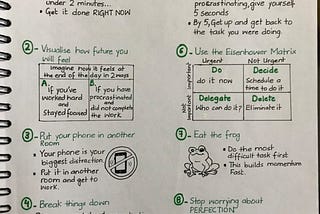 under 2 minutes...
• Get it done RIGHT NOW
② - Visualise how future you
will feel
Imagine how it feels at
the end of the day in 2 ways
A.
If you've
worked hard
and
Stayed focused
B. If you have
procrastinated
and did
not complete
the work.
③ - Put your phone in another
Room
• Your phone is your
biggest distraction.
• Put it in another
room and get to
work.
④ - Break things down
procrastinating, give yourself
5 seconds
• By 5, Get up and get back to
the task you were doing.
⑥ - Use the Eisenhower Matrix
Urgent
Not Urgent
Important
Do
do it now
Decide
Schedule a
time to do it
Not
Important
Delegate
Who can do it?
Delete
Eliminate it
⑦ - Eat the frog
• Do the most
difficult task first
• This builds momentum
Fast.
⑧ - Stop worrying about
PERFECTION"